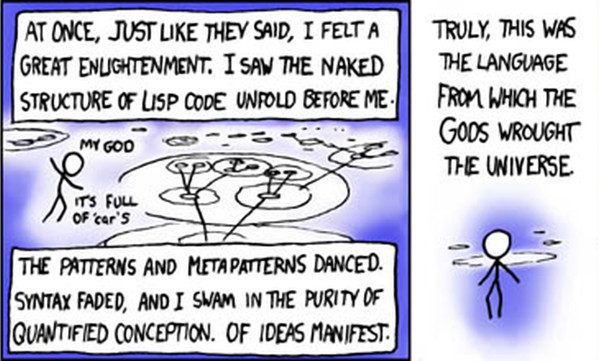 AT ONCE, JUST LIKE THEY SAID, I FELT A
GREAT ENLIGHTENMENT. I SAW THE NAKED
STRUCTURE OF LISP CODE UNFOLD BEFORE ME.
MY GOD
IT'S FULL
OF 'car'S
THE PATTERNS AND METAPATTERNS DANCED.
SYNTAX FADED, AND I SWAM IN THE PURITY OF
QUANTIFIED CONCEPTION. OF IDEAS MANIFEST.
TRULY, THIS WAS
THE LANGUAGE
FROM WHICH THE
GODS WROUGHT
THE UNIVERSE.